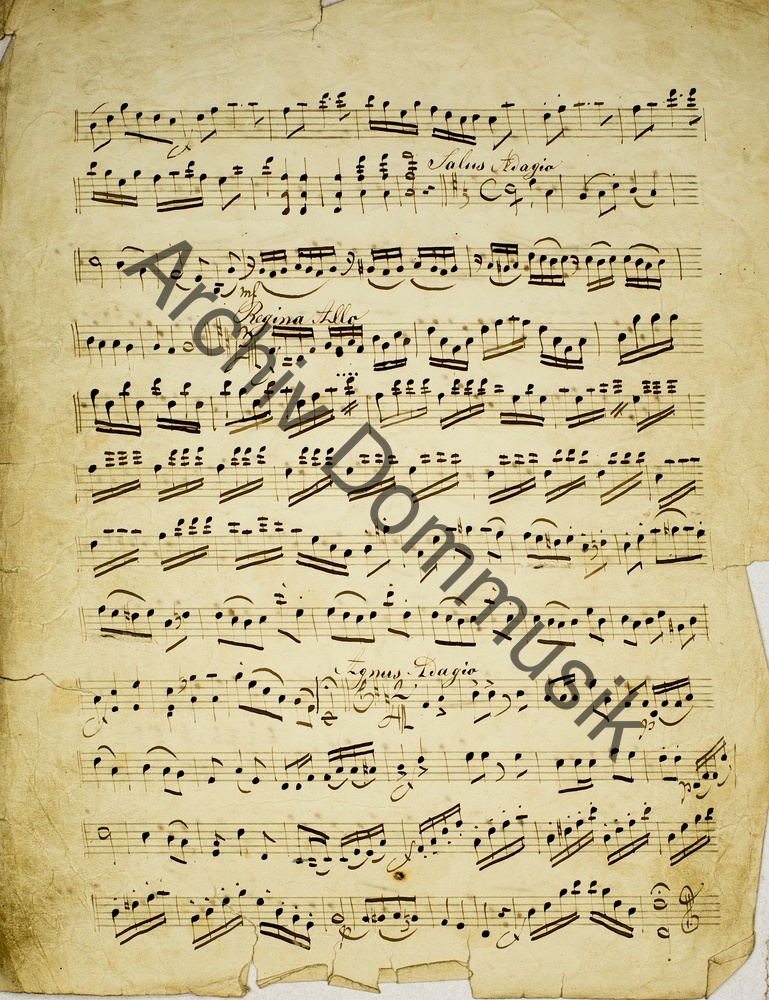 Salus Adagio
mf
Regina Allo
Agnus Adagio
Archiv Dommusik